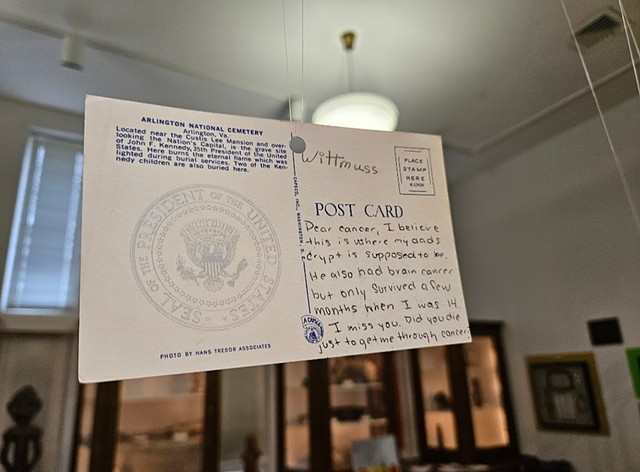 ARLINGTON NATIONAL CEMETERY
Arlington, Va.
Located near the Custis Lee Mansion and over-
looking the Nation's Capital, is the grave site
of John F. Kennedy, 35th President of the United
States. Here burns the eternal flame which was
lighted during burial services. Two of the Ken-
nedy children are also buried here.
SEAL OF THE PRESIDENT OF THE UNITED STATES
PHOTO BY HANS TREBOR ASSOCIATES
CAPSCO, INC., WASHINGTON, D.C.
Wittmuss
PLACE
STAMP
HERE
POST CARD
Dear cancer, I believe
this is where my dads
crypt is supposed to be.
He also had brain cancer
but only survived a few
months when I was 14.
I miss you. Did you die
just to get me through cancer.